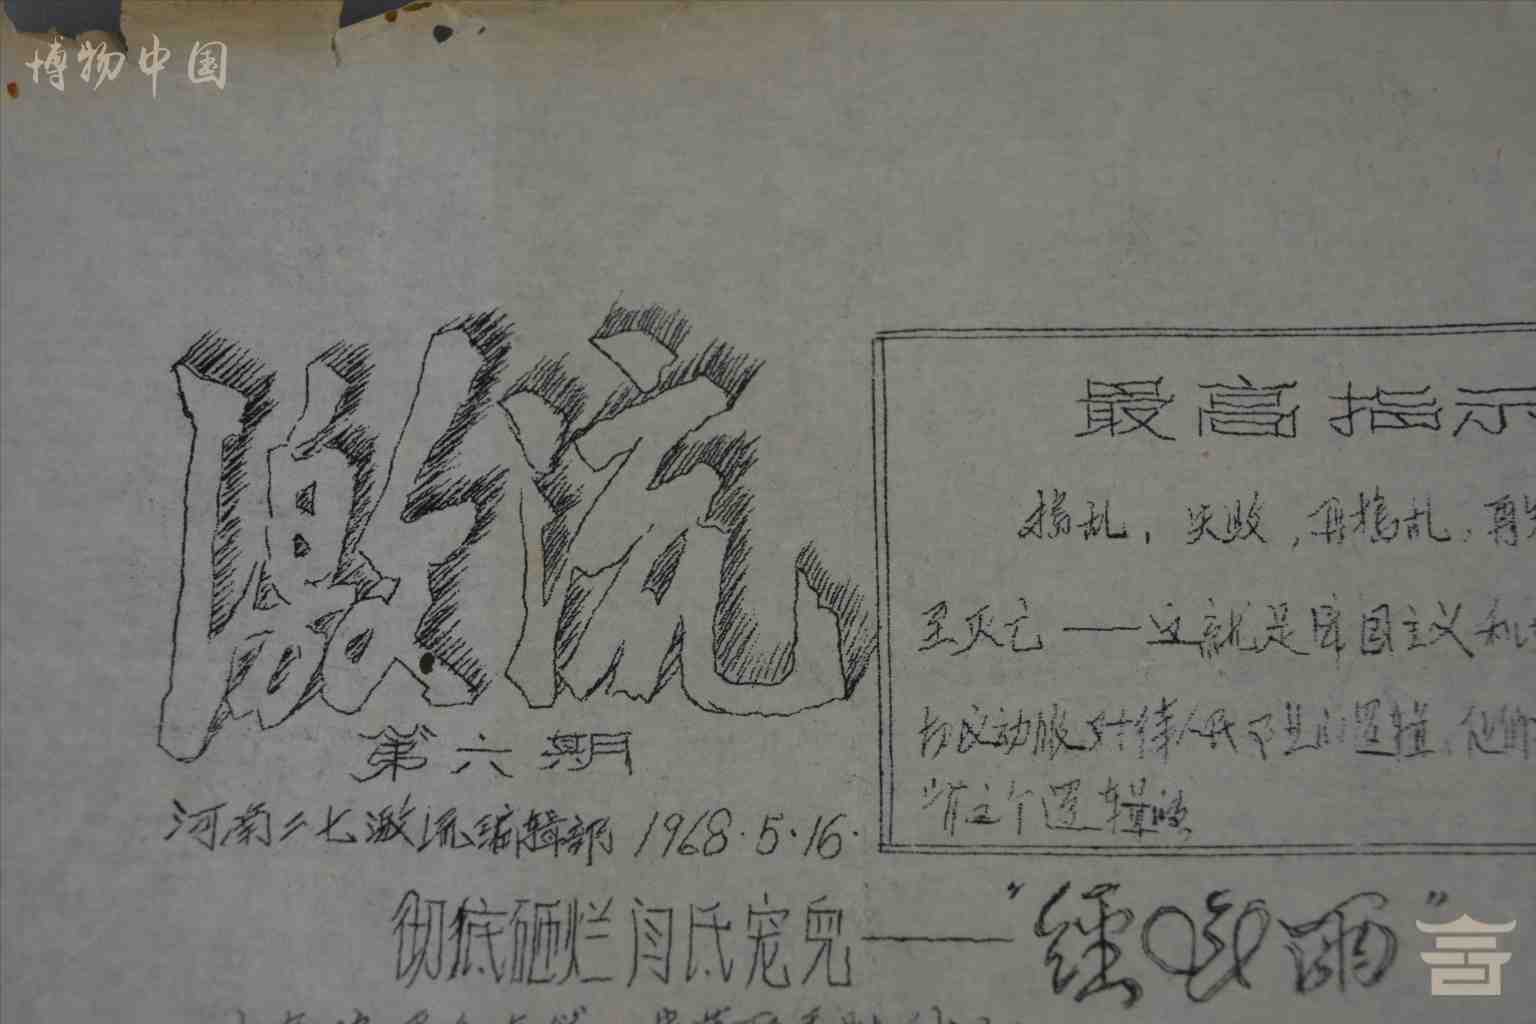 博物中国
激流
第六期
河南二七激流编辑部 1968·5·16·
最高指示
捣乱，失败，再捣乱，再
至灭亡——这就是帝国主义和
切反动派对待人民事业的逻辑，他们
背这个逻辑的
彻底砸烂闫氏宠儿——“经风雨”